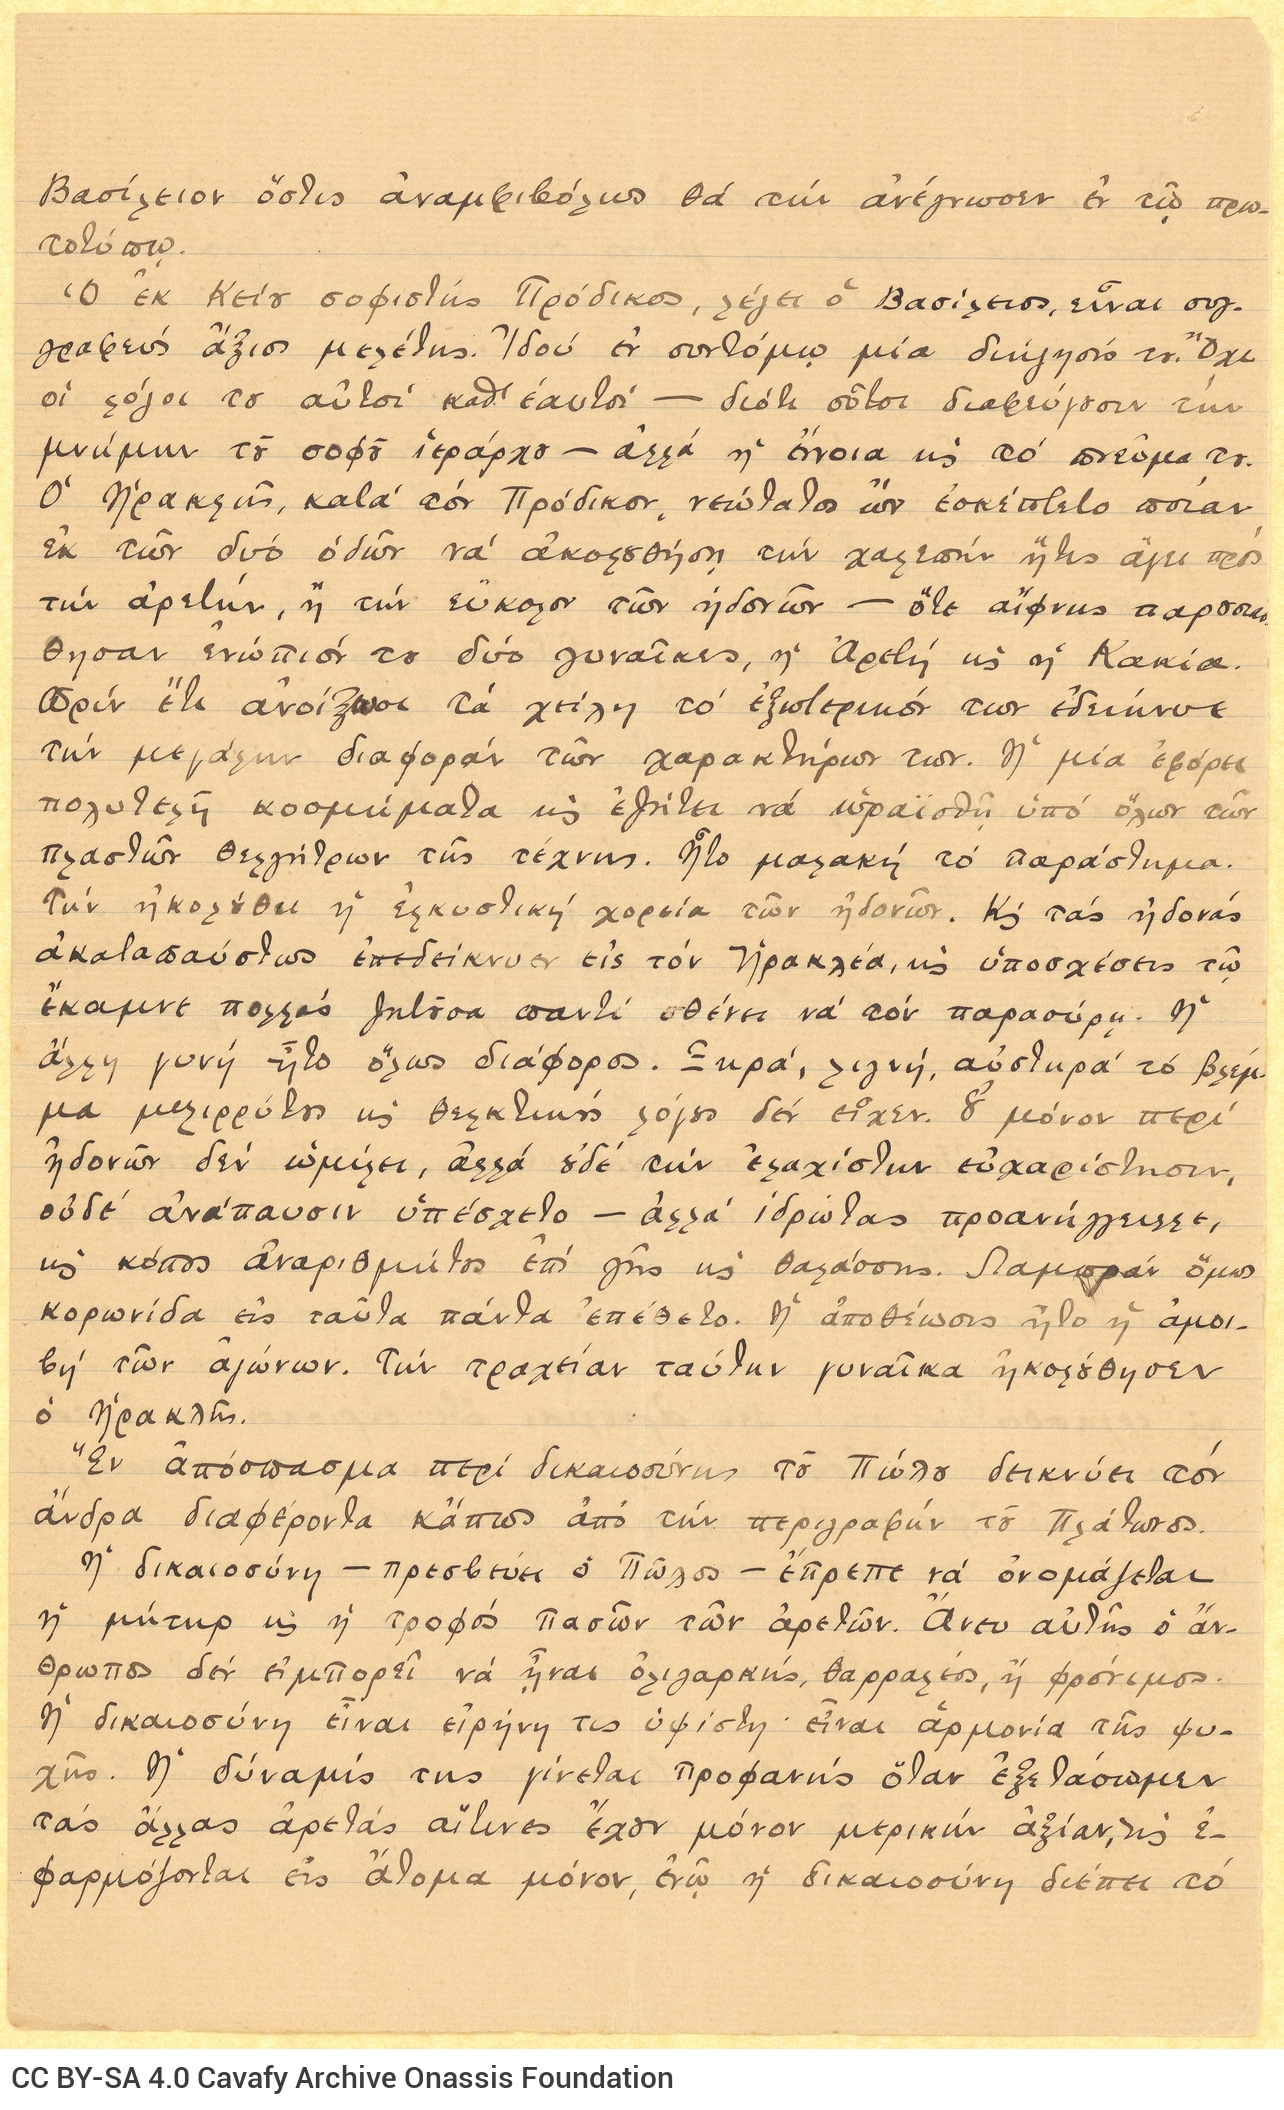 Βασίλειον ὅστις ἀναμφιβόλως θά τήν ἀνέγνωσεν ἐν τῷ πρω-
τοτύπῳ.
Ὁ ἐκ Κείου σοφιστής Πρόδικος, λέγει ὁ Βασίλειος, εἶναι συγ-
γραφεύς ἄξιος μελέτης. Ἰδού ἐν συντόμῳ μία διήγησίς του. Ὄχι
οἱ λόγοι του αὐτοί καθ' ἑαυτοί — διότι οὗτοι διαφεύγουσιν τήν
μνήμην τοῦ σοφοῦ ἱεράρχου — ἀλλά ἡ ἔννοια κ̀ τό πνεῦμα του.
Ὁ Ἡρακλῆς, κατά τόν Πρόδικον, νεώτατος ὤν ἐσκέπτετο ποίαν
ἐκ τῶν δυό ὁδῶν νά ἀκολουθήσῃ τήν χαλεπήν ἥτις ἄγει πρός
τήν ἀρετήν, ἤ τήν εὔκολον τῶν ἡδονῶν — ὅτε αἴφνης παρουσιάσ-
θησαν ἐνώπιόν του δύο γυναῖκες, ἡ Ἀρετή κ̀ ἡ Κακία.
Πρίν ἔτι ἀνοίξωσι τά χείλη τό ἐξωτερικόν των ἐδείκνυε
τήν μεγάλην διαφοράν τῶν χαρακτήρων των. Ἡ μία ἐφόρει
πολυτελῆ κοσμήματα κ̀ ἐζήτει νά ὡραϊσθῇ ὑπό ὅλων τῶν
πλαστῶν θελγήτρων τῆς τέχνης. Ἦτο μαλακή τό παράστημα.
Τήν ἠκολούθει ἡ ἑλκυστική χορεία τῶν ἡδονῶν. Κ̀ τάς ἡδονάς
ἀκαταπαύστως ἐπεδείκνυεν εἰς τόν Ἡρακλέα, κ̀ ὑποσχέσεις τῷ
ἔκαμνε πολλάς ζητοῦσα παντί σθένει νά τόν παρασύρῃ. Ἡ
ἄλλη γυνή ἦτο ὅλως διάφορος. Ξηρά, λιγνή, αὐστηρά τό βλέμ-
μα μελιρρύτους κ̀ θελκτικούς λόγους δέν εἶχεν. Οὐ μόνον περί
ἡδονῶν δέν ὡμίλει, ἀλλά οὐδέ τήν ἐλαχίστην εὐχαρίστησιν,
οὐδέ ἀνάπαυσιν ὑπέσχετο — ἀλλά ἱδρώτας προανήγγειλλε,
κ̀ κόπους ἀναριθμήτους ἐπί γῆς κ̀ θαλάσσης. Λαμπράν ὅμως
κορωνίδα εἰς ταῦτα πάντα ἐπέθετο. Ἡ ἀποθέωσις ἦτο ἡ ἀμοι-
βή τῶν ἀγώνων. Τήν τραχεῖαν ταύτην γυναῖκα ἠκολούθησεν
ὁ Ἡρακλῆς.
Ἕν ἀπόσπασμα περί δικαιοσύνης τοῦ Πώλου δεικνύει τόν
ἄνδρα διαφέροντα κἄπως ἀπό τήν περιγραφήν τοῦ Πλάτωνος.
Ἡ δικαιοσύνη — πρεσβεύει ὁ Πῶλος — ἔπρεπε νά ὀνομάζεται
ἡ μήτηρ κ̀ ἡ τροφός πασῶν τῶν ἀρετῶν. Ἄνευ αὐτῆς ὁ ἄν-
θρωπος δέν εἰμπορεῖ νά ἦναι ὀλιγαρκής, θαρραλέος, ἤ φρόνιμος.
Ἡ δικαιοσύνη εἶναι εἰρήνη τις ὑψίστη· εἶναι ἁρμονία τῆς ψυ-
χῆς. Ἡ δύναμίς της γίνεται προφανής ὅταν ἐξετάσωμεν
τάς ἄλλας ἀρετάς αἵτινες ἔχουν μόνον μερικήν ἀξίαν, κ̀ ἐ-
φαρμόζονται εἰς ἄτομα μόνον, ἐνῷ ἡ δικαιοσύνη διέπει τό
CC BY-SA 4.0 Cavafy Archive Onassis Foundation